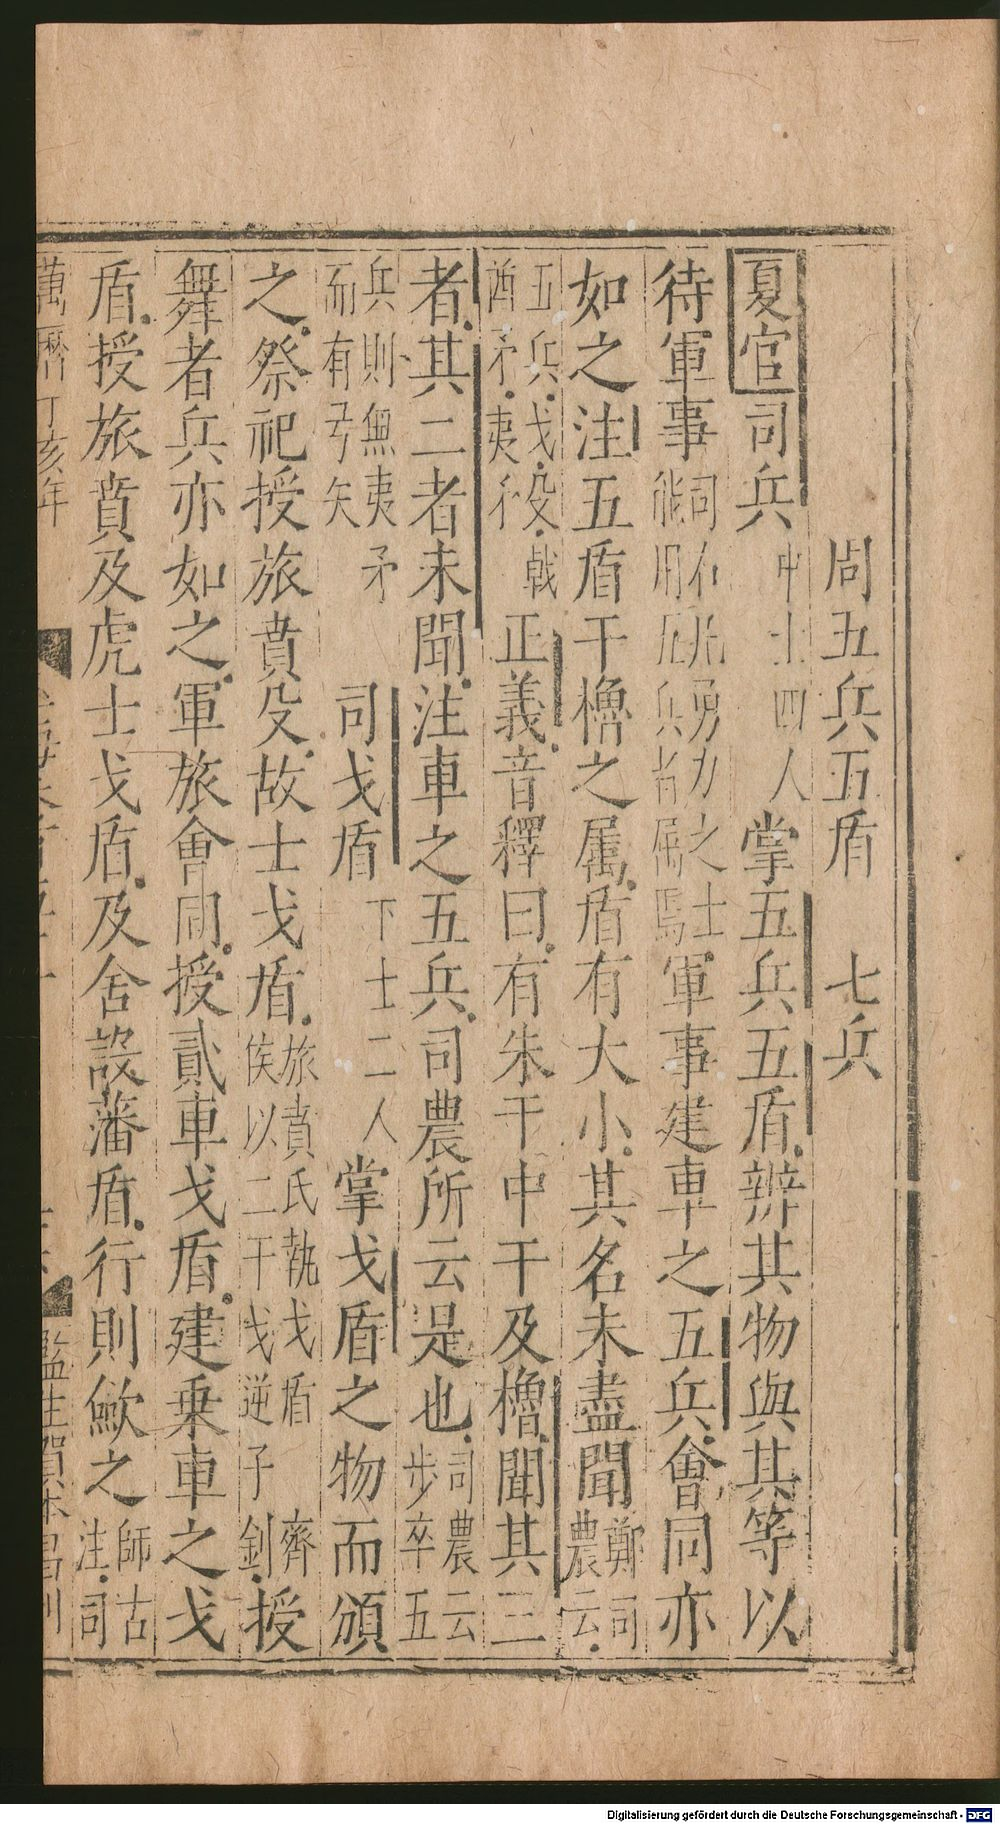 周五兵五盾　七兵
夏官司兵中士四人掌五兵五盾辨其物與其等以
待軍事司右凡勇力之士能用五兵者屬焉軍事建車之五兵會同亦
如之注五盾干櫓之屬盾有大小其名未盡聞鄭司農云
五兵戈殳戟酋矛夷矛正義音釋曰有朱干中干及櫓聞其三
者其二者未聞注車之五兵司農所云是也司農云步卒五
兵則無夷矛而有弓矢司戈盾下士二人掌戈盾之物而頒
之祭祀授旅賁殳故士戈盾旅賁氏執戈盾齊侯以二干戈逆子釗授
舞者兵亦如之軍旅會同授貳車戈盾建乘車之戈
盾授旅賁及虎士戈盾及舍設藩盾行則斂之師古注司
萬曆丁亥年
Digitalisierung gefördert durch die Deutsche Forschungsgemeinschaft - DFG